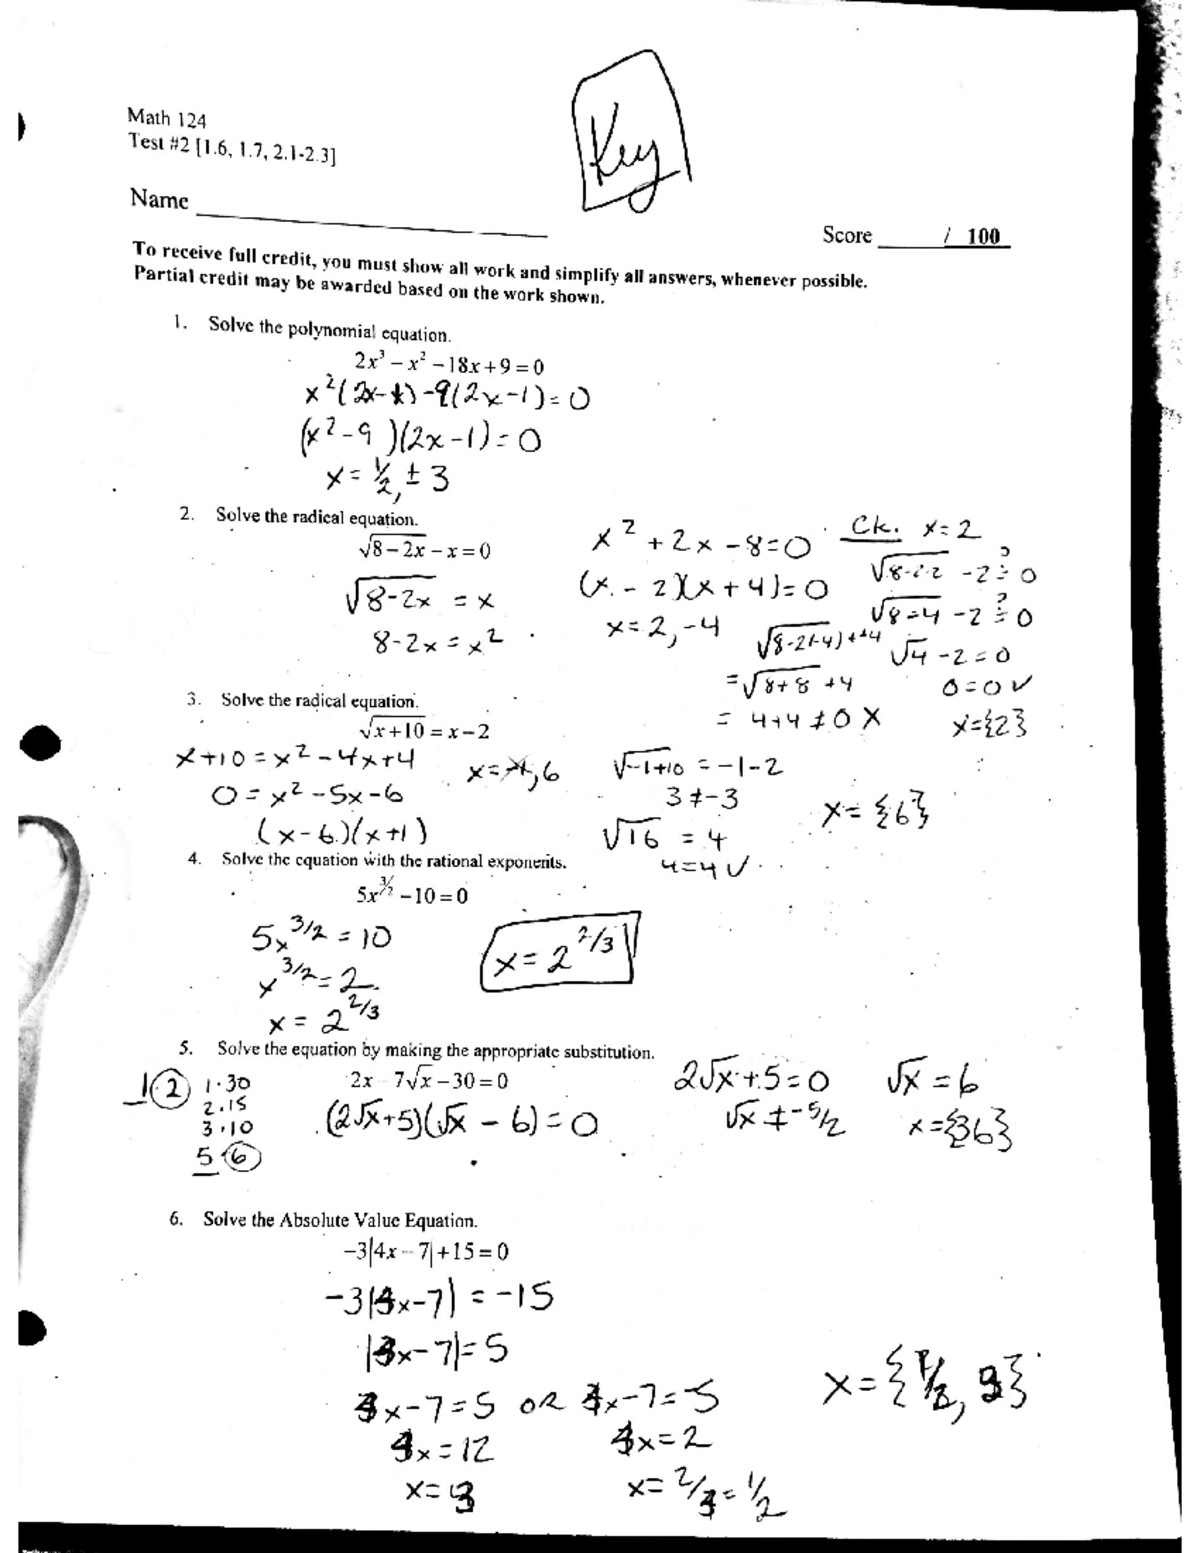 Key
Math 124
Test #2 [1.6, 1.7, 2.1-2.3]
Name
Score / 100
To receive full credit, you must show all work and simplify all answers, whenever possible.
Partial credit may be awarded based on the work shown.
1. Solve the polynomial equation.
2x³ – x² – 18x + 9 = 0
x²(2x-1) -9(2x-1) = 0
(x²-9)(2x-1) = 0
x = ½, ± 3
2. Solve the radical equation.
√8 – 2x – x = 0
√8-2x = x
8-2x = x²
x² + 2x - 8 = 0
(x - 2)(x + 4) = 0
x = 2, -4
√8-2(-4) + +4
= √8+8 +4
= 4+4 ≠ 0 X
Ck. x = 2
√8-2·2 -2 ≟ 0
√8-4 -2 ≟ 0
√4 -2 = 0
0 = 0 ✓
x = {2}
3. Solve the radical equation.
√x+10 = x – 2
x+10 = x² - 4x + 4
0 = x² - 5x - 6
(x-6)(x+1)
x = -1, 6
√-1+10 = -1-2
3 ≠ -3
√16 = 4
4 = 4 ✓
x = {6}
4. Solve the equation with the rational exponents.
5x^3/2 – 10 = 0
5x^3/2 = 10
x^3/2 = 2
x = 2^2/3
x = 2^2/3
5. Solve the equation by making the appropriate substitution.
2x – 7√x – 30 = 0
1·2
1·30
2·15
3·10
5·6
(2√x+5)(√x - 6) = 0
2√x + 5 = 0
√x ≠ -5/2
√x = 6
x = {36}
6. Solve the Absolute Value Equation.
–3|4x – 7| + 15 = 0
-3|4x-7| = -15
|4x-7| = 5
4x-7 = 5 OR 4x-7 = -5
4x = 12 4x = 2
x = 3 x = 2/4 = 1/2
x = {1/2, 3}